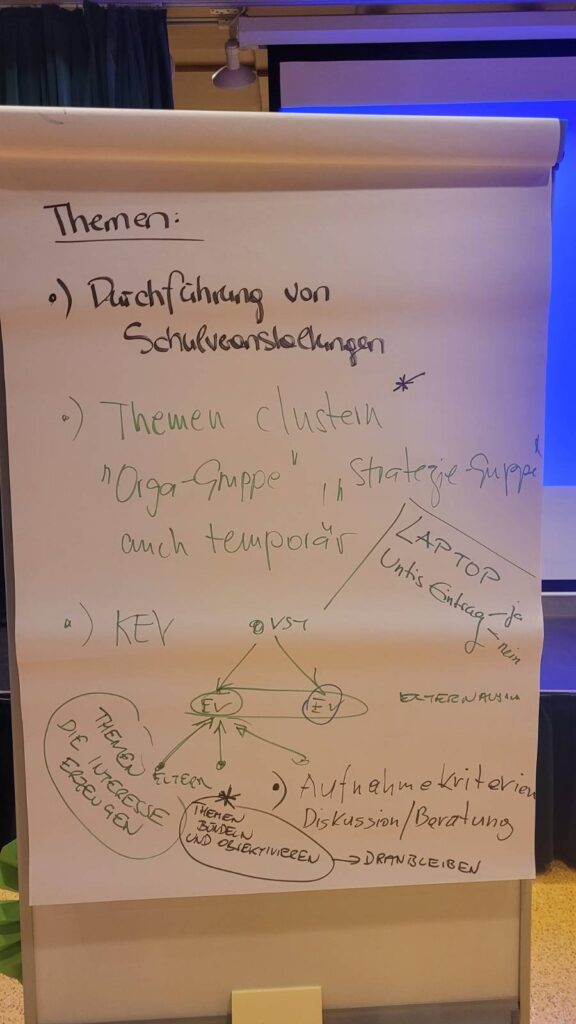 Themen:
•) Durchführung von
Schulveranstaltungen
•) Themen clustern *
"Orga-Gruppe", "Strategie-Gruppe"
auch temporär
LAPTOP
Untis Eintrag - ja
- nein
•) KEV
EV
EV
ELTERN
THEMEN
DIE INTERESSE
ERZEUGEN
*
THEMEN
BÜNDELN
UND OBJEKTIVIEREN
→ DRANBLEIBEN
•) Aufnahmekriterien
Diskussion/Beratung